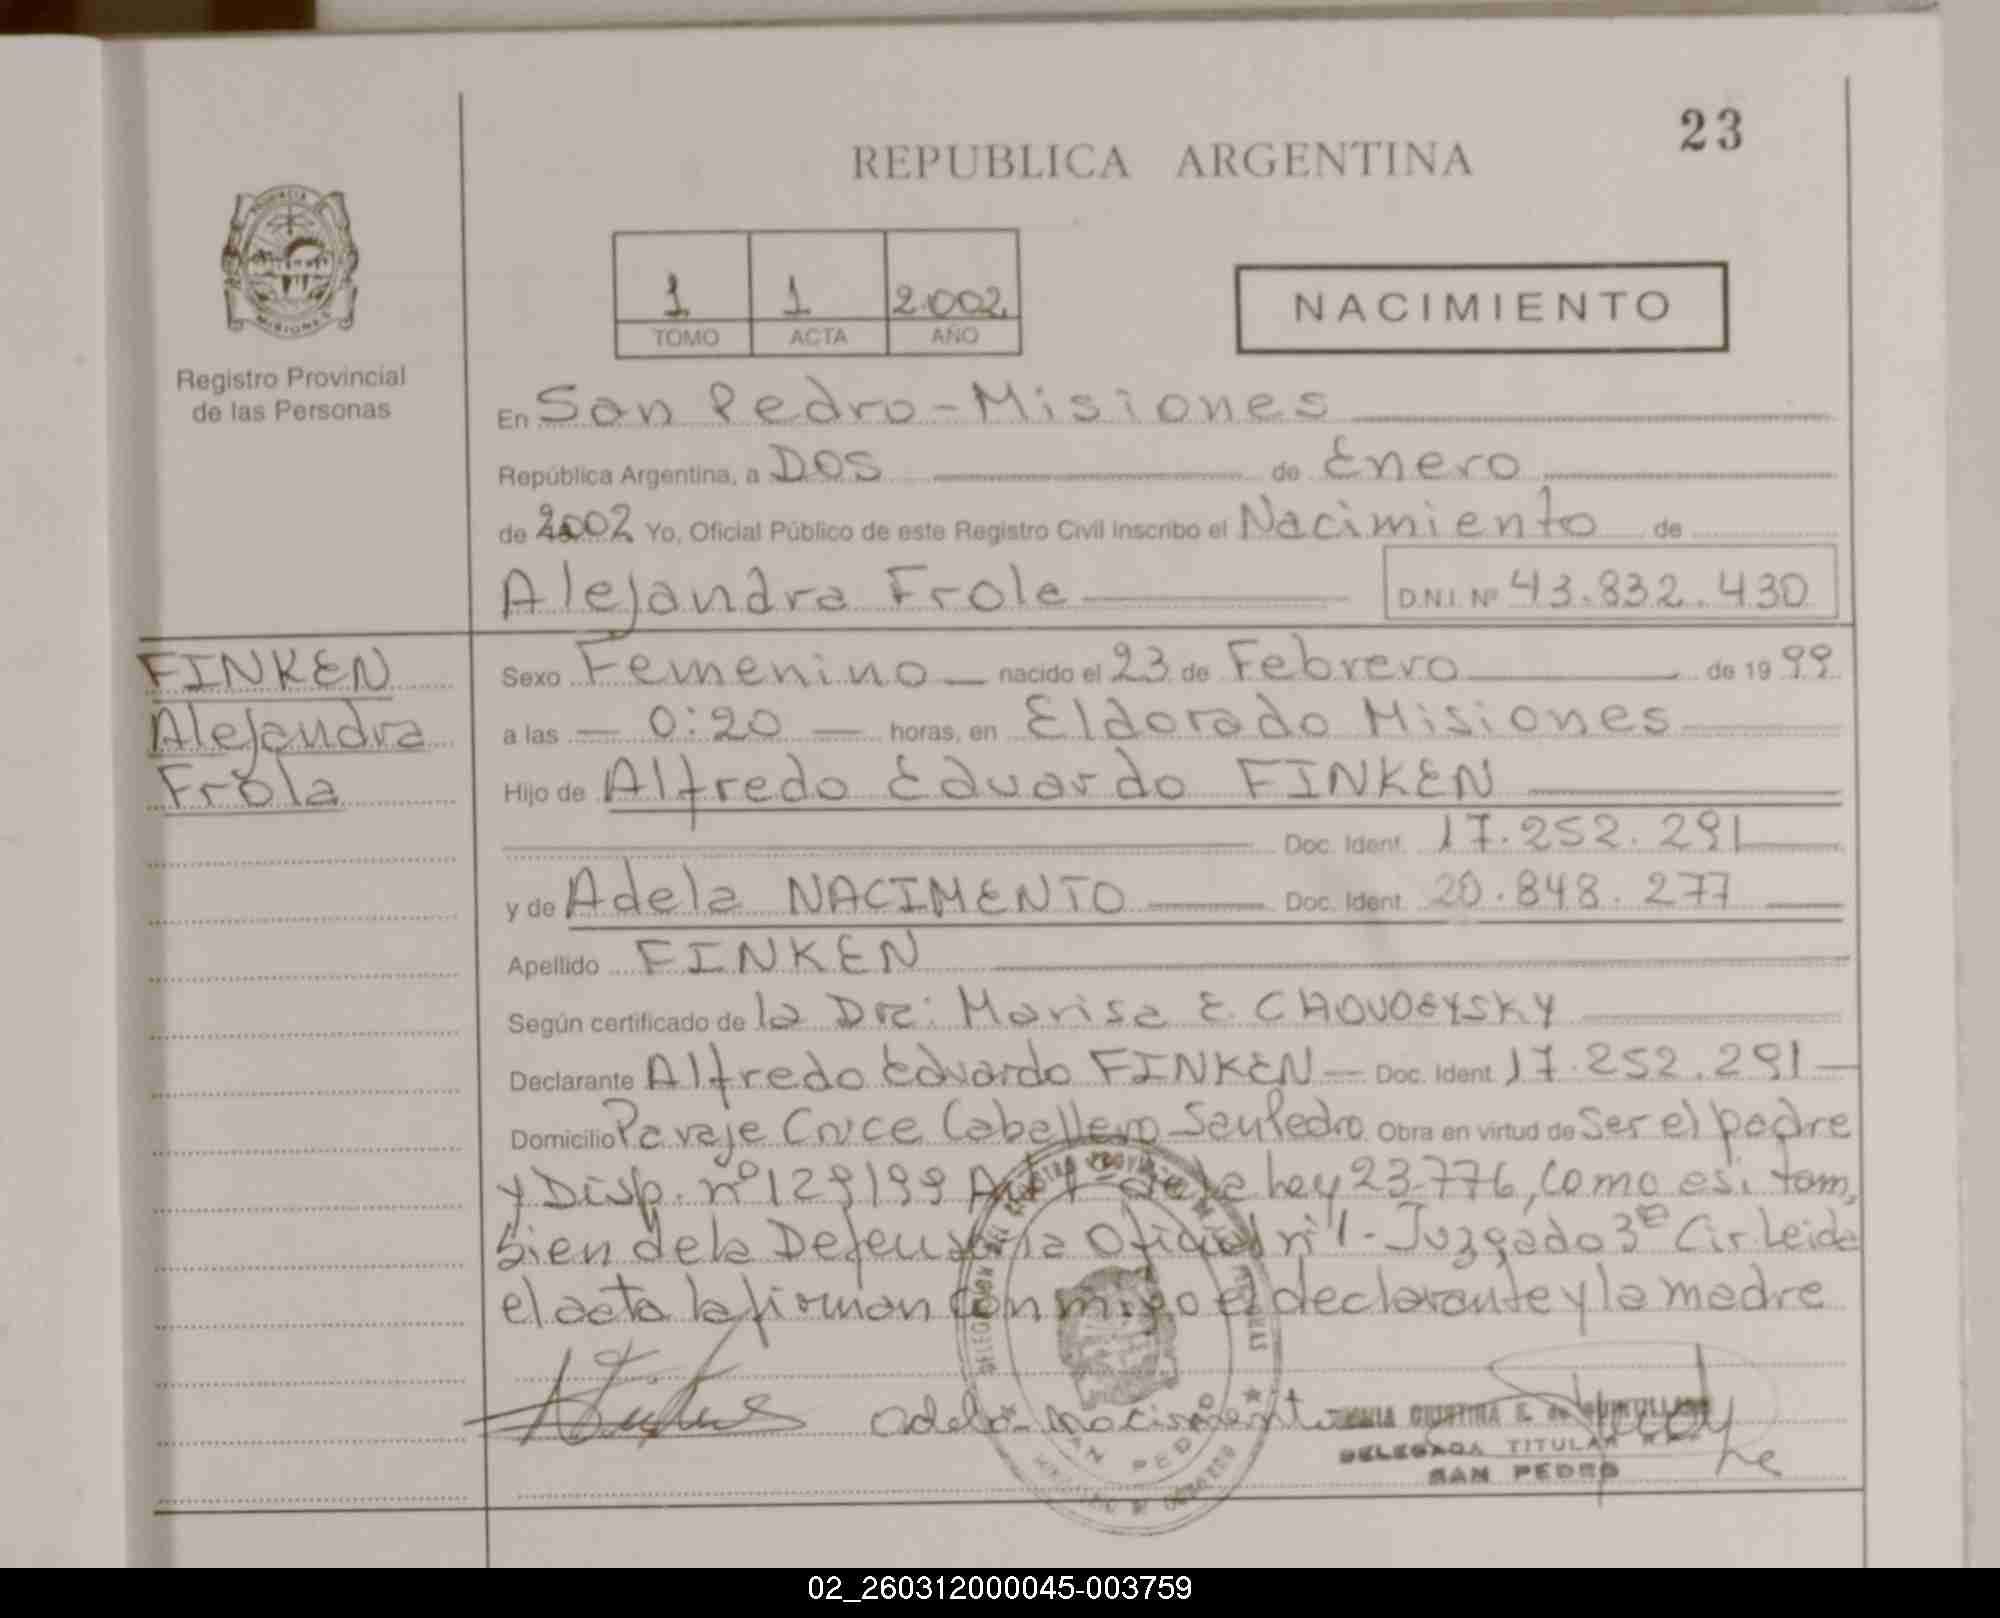 23
REPUBLICA ARGENTINA
PROVINCIA DE
MISIONES
Registro Provincial
de las Personas
1 1 2.002
TOMO ACTA AÑO
NACIMIENTO
En San Pedro - Misiones
República Argentina, a DOS de Enero
de 2002 Yo, Oficial Público de este Registro Civil inscribo el Nacimiento de
Alejandra Frola D.N.I. Nº 43.832.430
FINKEN
Alejandra
Frola
Sexo Femenino nacido el 23 de Febrero de 1999
a las 0:20 horas, en Eldorado Misiones
Hijo de Alfredo Eduardo FINKEN
Doc. Ident. 17.252.291
y de Adela NACIMENTO Doc. Ident. 20.848.277
Apellido FINKEN
Según certificado de la Dra: Marisa E.
Declarante Alfredo Eduardo FINKEN Doc. Ident. 17.252.291
Domicilio Paraje Cruce Caballero San Pedro Obra en virtud de Ser el padre
y Disp. nº 129/99 de la ley 23.776, como asi tam,
bien de la Defensoria Oficial nº 1 - Juzgado 3ª Cir. Leida
el acta la firman con migo el declarante y la madre
Adela nacimento
DELEGADA TITULAR
SAN PEDRO
02_260312000045-003759